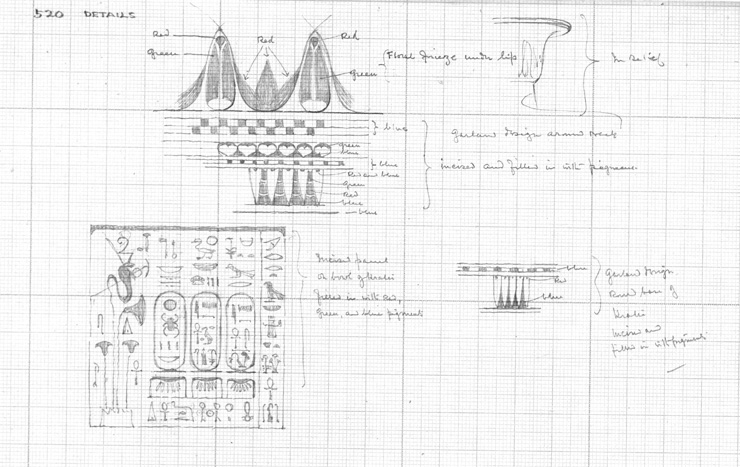 520 DETAILS
Red
Red
Red
Green
Green
Floral frieze under lip
In relief
blue
Green
blue
blue
Red and blue
Green
Red
blue
blue
Garland design around neck
incised and filled in with pigments.
Incised panel
on bowl of Kralis
filled in with Red,
Green, and blue pigments
blue
Red
blue
Garland design.
base of
Kralis
Incised and
filled in with pigments